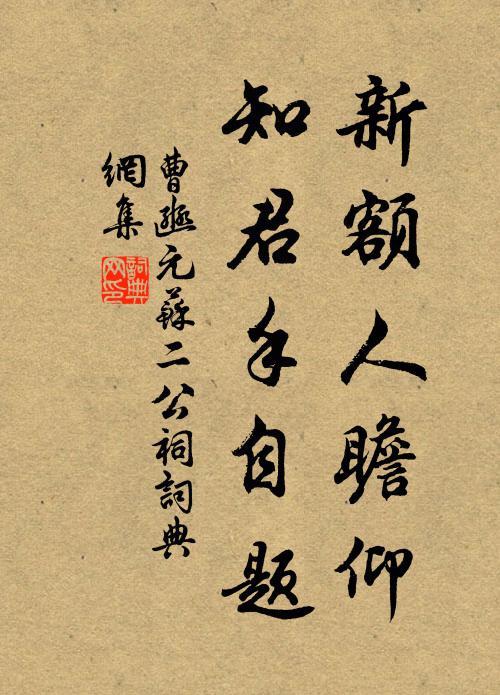 新額人瞻仰
知君手自題
曹豳元蘇二公祠詞典
網集
詞典
网印